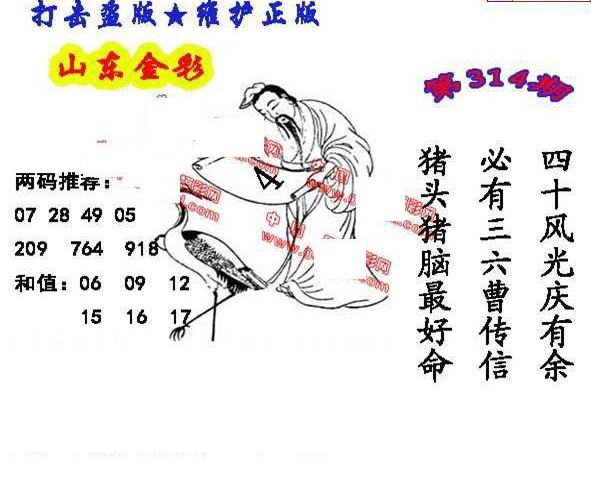 打击盗版★维护正版
山东金彩
第314期
四十风光庆有余
必有三六曹传信
猪头猪脑最好命
4
两码推荐：
07 28 49 05
209 764 918
和值：06 09 12
15 16 17